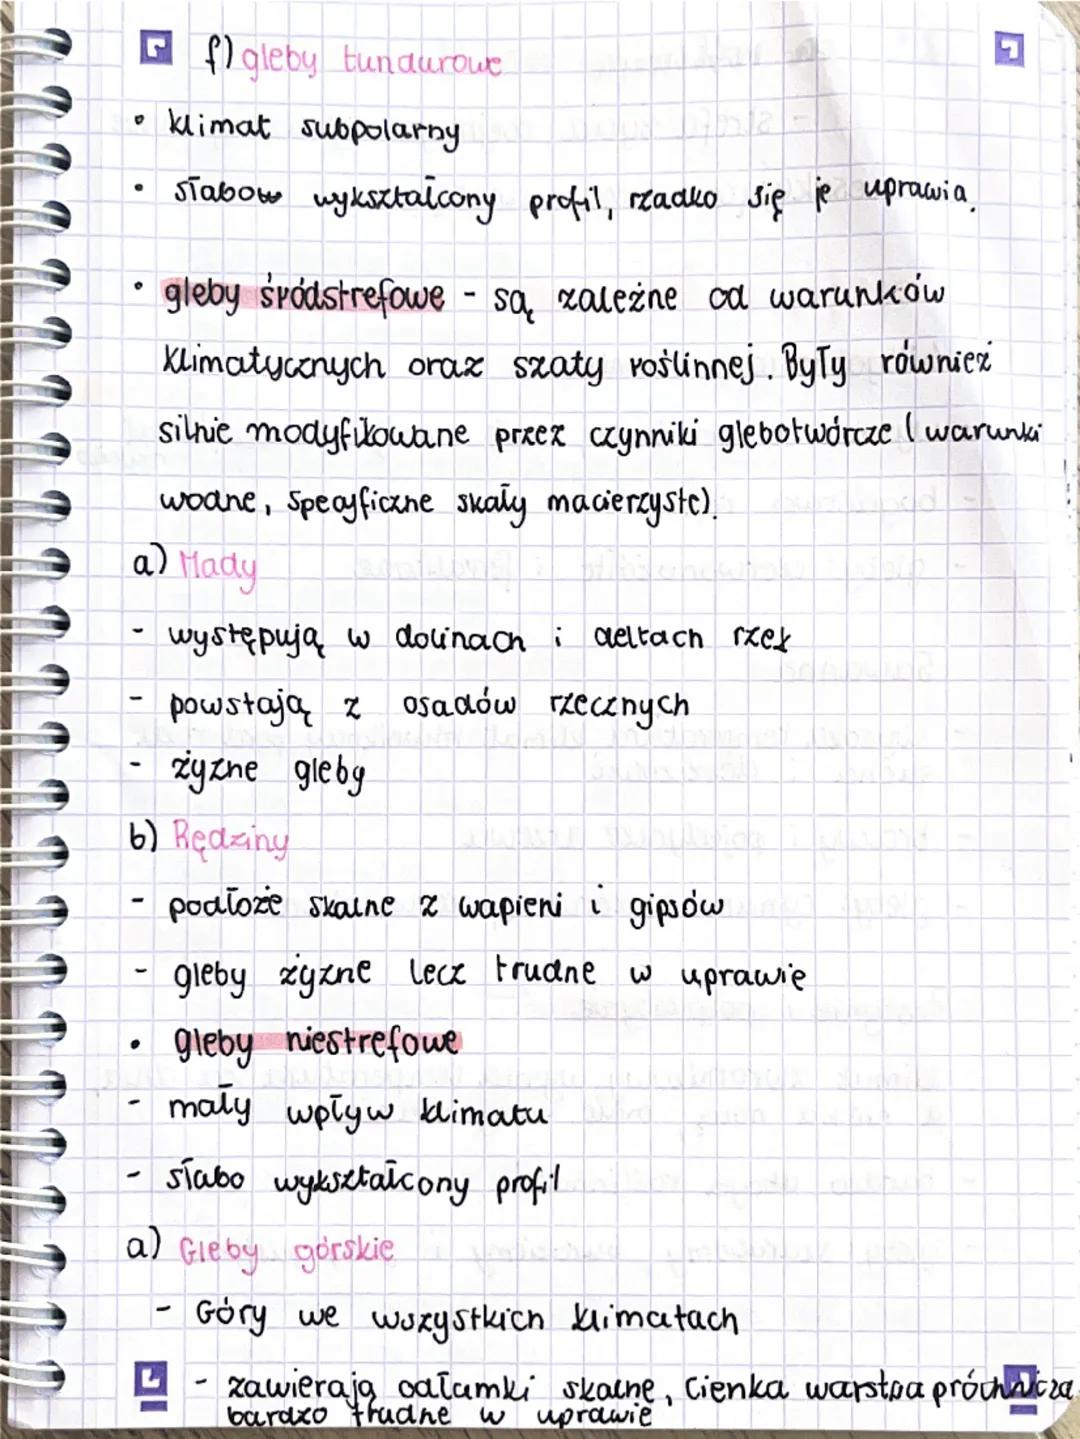 f) gleby tundurowe
• klimat subpolarny
• słabow wykształcony profil, rzadko się je uprawia.
• gleby śródstrefowe - są zależne od warunków
klimatycznych oraz szaty roślinnej. Były również
silnie modyfikowane przez czynniki glebotwórcze (warunki
wodne, specyficzne skały macierzyste).
a) Mady
- występują w dolinach i deltach rzek
- powstają z osadów rzecznych
- żyzne gleby
b) Rędziny
- podłoże skalne z wapieni i gipsów
- gleby żyzne lecz trudne w uprawie
• gleby niestrefowe
- mały wpływ klimatu
- słabo wykształcony profil
a) Gleby górskie
- Góry we wszystkich klimatach
- zawierają odłamki skalne, cienka warstwa próchnicza
bardzo trudne w uprawie